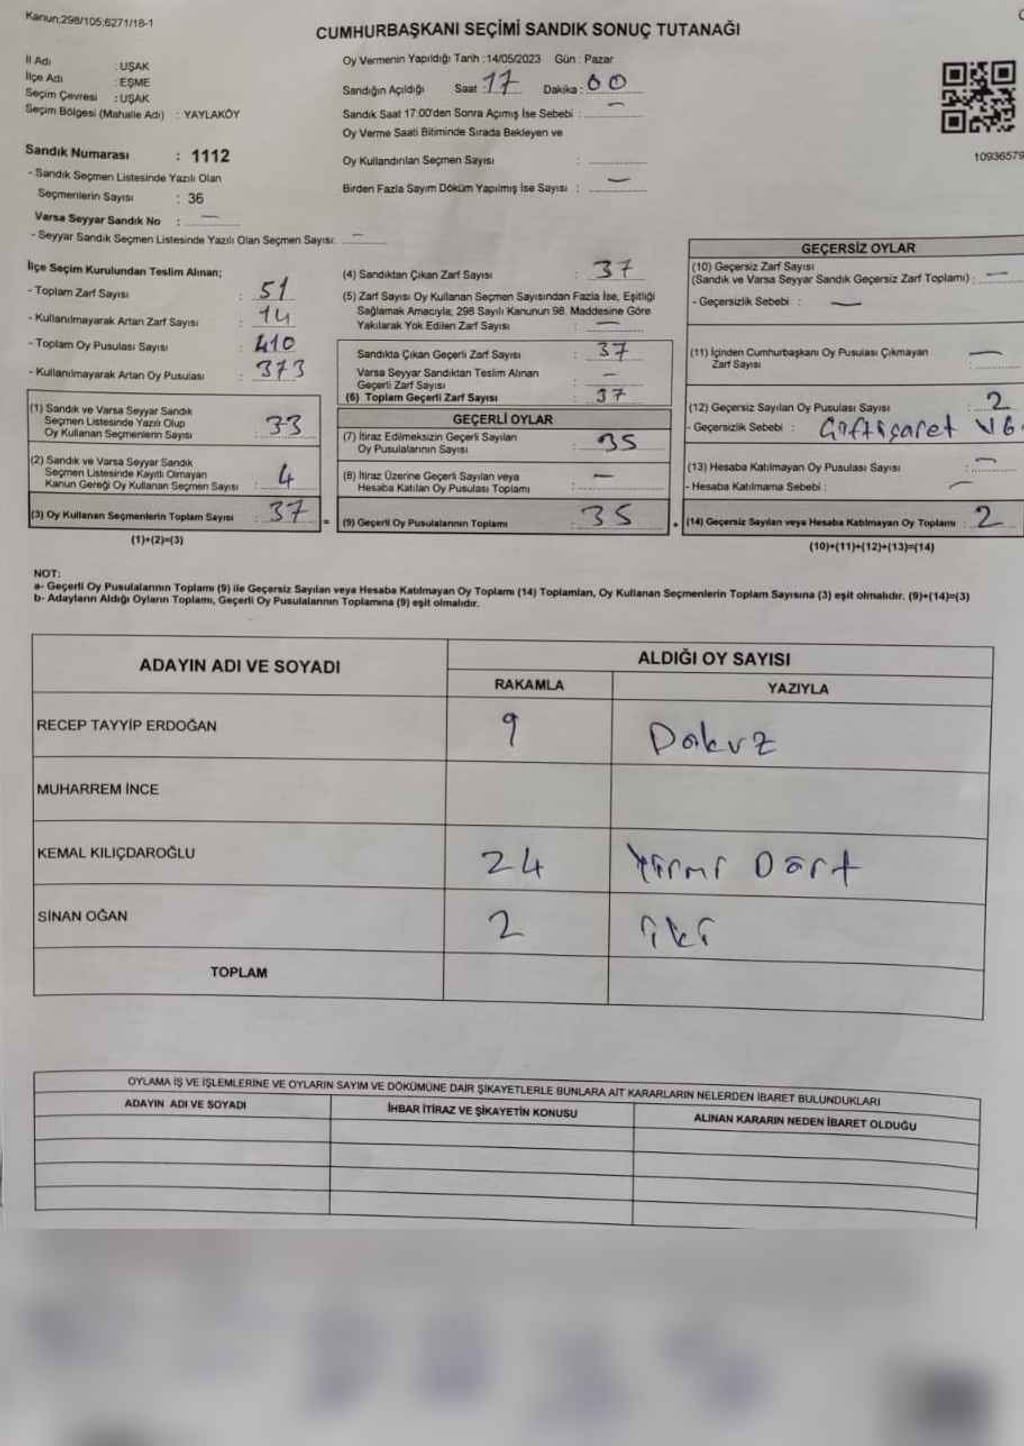 Kanun;298/105;6271/18-1
CUMHURBAŞKANI SEÇİMİ SANDIK SONUÇ TUTANAĞI
İl Adı : UŞAK
İlçe Adı : EŞME
Seçim Çevresi : UŞAK
Seçim Bölgesi (Mahalle Adı) : YAYLAKÖY
Sandık Numarası : 1112
- Sandık Seçmen Listesinde Yazılı Olan
Seçmenlerin Sayısı : 36
Varsa Seyyar Sandık No : —
- Seyyar Sandık Seçmen Listesinde Yazılı Olan Seçmen Sayısı: —
Oy Vermenin Yapıldığı Tarih :14/05/2023 Gün : Pazar
Sandığın Açıldığı Saat : 17 Dakika : 00
Sandık Saat 17:00'den Sonra Açımış İse Sebebi : —
Oy Verme Saati Bitiminde Sırada Bekleyen ve
Oy Kullandırılan Seçmen Sayısı :
Birden Fazla Sayım Döküm Yapılmış İse Sayısı : —
10936579
İlçe Seçim Kurulundan Teslim Alınan;
- Toplam Zarf Sayısı : 51
- Kullanılmayarak Artan Zarf Sayısı : 14
- Toplam Oy Pusulası Sayısı : 410
- Kullanılmayarak Artan Oy Pusulası : 373
(1) Sandık ve Varsa Seyyar Sandık
Seçmen Listesinde Yazılı Olup
Oy Kullanan Seçmenlerin Sayısı : 33
(2) Sandık ve Varsa Seyyar Sandık
Seçmen Listesinde Kayıtlı Olmayan
Kanun Gereği Oy Kullanan Seçmen Sayısı : 4
(3) Oy Kullanan Seçmenlerin Toplam Sayısı : 37
(1)+(2)=(3)
(4) Sandıktan Çıkan Zarf Sayısı : 37
(5) Zarf Sayısı Oy Kullanan Seçmen Sayısından Fazla İse, Eşitliği
Sağlamak Amacıyla; 298 Sayılı Kanunun 98. Maddesine Göre
Yakılarak Yok Edilen Zarf Sayısı : —
Sandıkta Çıkan Geçerli Zarf Sayısı : 37
Varsa Seyyar Sandıktan Teslim Alınan
Geçerli Zarf Sayısı : —
(6) Toplam Geçerli Zarf Sayısı : 37
GEÇERLİ OYLAR
(7) İtiraz Edilmeksizin Geçerli Sayılan
Oy Pusulalarının Sayısı : 35
(8) İtiraz Üzerine Geçerli Sayılan veya
Hesaba Katılan Oy Pusulası Toplamı : —
=
(9) Geçerli Oy Pusulalarının Toplamı : 35
+
GEÇERSİZ OYLAR
(10) Geçersiz Zarf Sayısı
(Sandık ve Varsa Seyyar Sandık Geçersiz Zarf Toplamı) : —
- Geçersizlik Sebebi : —
(11) İçinden Cumhurbaşkanı Oy Pusulası Çıkmayan
Zarf Sayısı : —
(12) Geçersiz Sayılan Oy Pusulası Sayısı : 2
- Geçersizlik Sebebi : Çiftişaret
(13) Hesaba Katılmayan Oy Pusulası Sayısı : —
- Hesaba Katılmama Sebebi : —
(14) Geçersiz Sayılan veya Hesaba Katılmayan Oy Toplamı : 2
(10)+(11)+(12)+(13)=(14)
NOT:
a- Geçerli Oy Pusulalarının Toplamı (9) ile Geçersiz Sayılan veya Hesaba Katılmayan Oy Toplamı (14) Toplamları, Oy Kullanan Seçmenlerin Toplam Sayısına (3) eşit olmalıdır. (9)+(14)=(3)
b- Adayların Aldığı Oyların Toplamı, Geçerli Oy Pusulalarının Toplamına (9) eşit olmalıdır.
ADAYIN ADI VE SOYADI
ALDIĞI OY SAYISI
RAKAMLA YAZIYLA
RECEP TAYYİP ERDOĞAN 9 Dokuz
MUHARREM İNCE
KEMAL KILIÇDAROĞLU 24 Yirmi Dört
SİNAN OĞAN 2 iki
TOPLAM
OYLAMA İŞ VE İŞLEMLERİNE VE OYLARIN SAYIM VE DÖKÜMÜNE DAİR ŞİKAYETLERLE BUNLARA AİT KARARLARIN NELERDEN İBARET BULUNDUKLARI
ADAYIN ADI VE SOYADI İHBAR İTİRAZ VE ŞİKAYETİN KONUSU ALINAN KARARIN NEDEN İBARET OLDUĞU